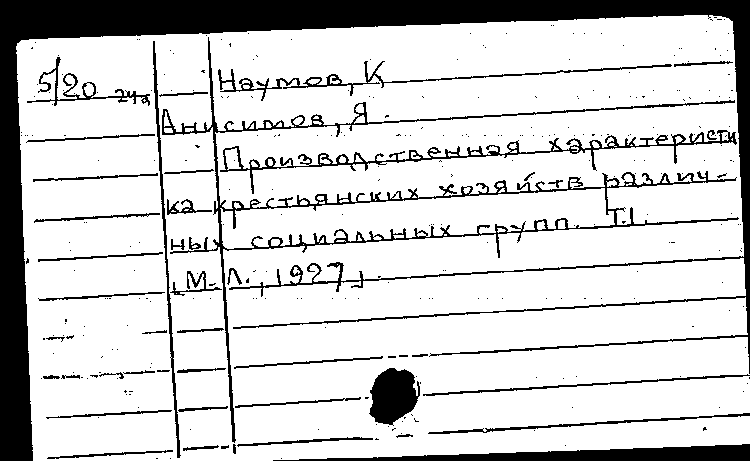 5/20 24a Наумов, К
Анисимов, Я.
Производственная характеристи
ка крестьянских хозяйств различ-
ных социальных групп. Т.1.
[М.-Л., 1927].